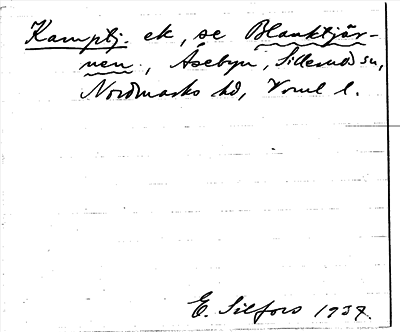 Kamptj. ek, se Blanktjär-
nen., Åsebyn, Sillerud sn,
Nordmarks hd, Vrml l.
E. Silfors 1937.